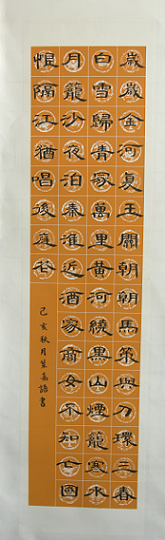 歲歲金河复玉關朝朝馬策與刀環三春
白雪歸青冢萬里黃河繞黑山煙籠寒水
月籠沙夜泊秦淮近酒家商女不知亡國
恨隔江猶唱後庭花
己亥秋月嘉書